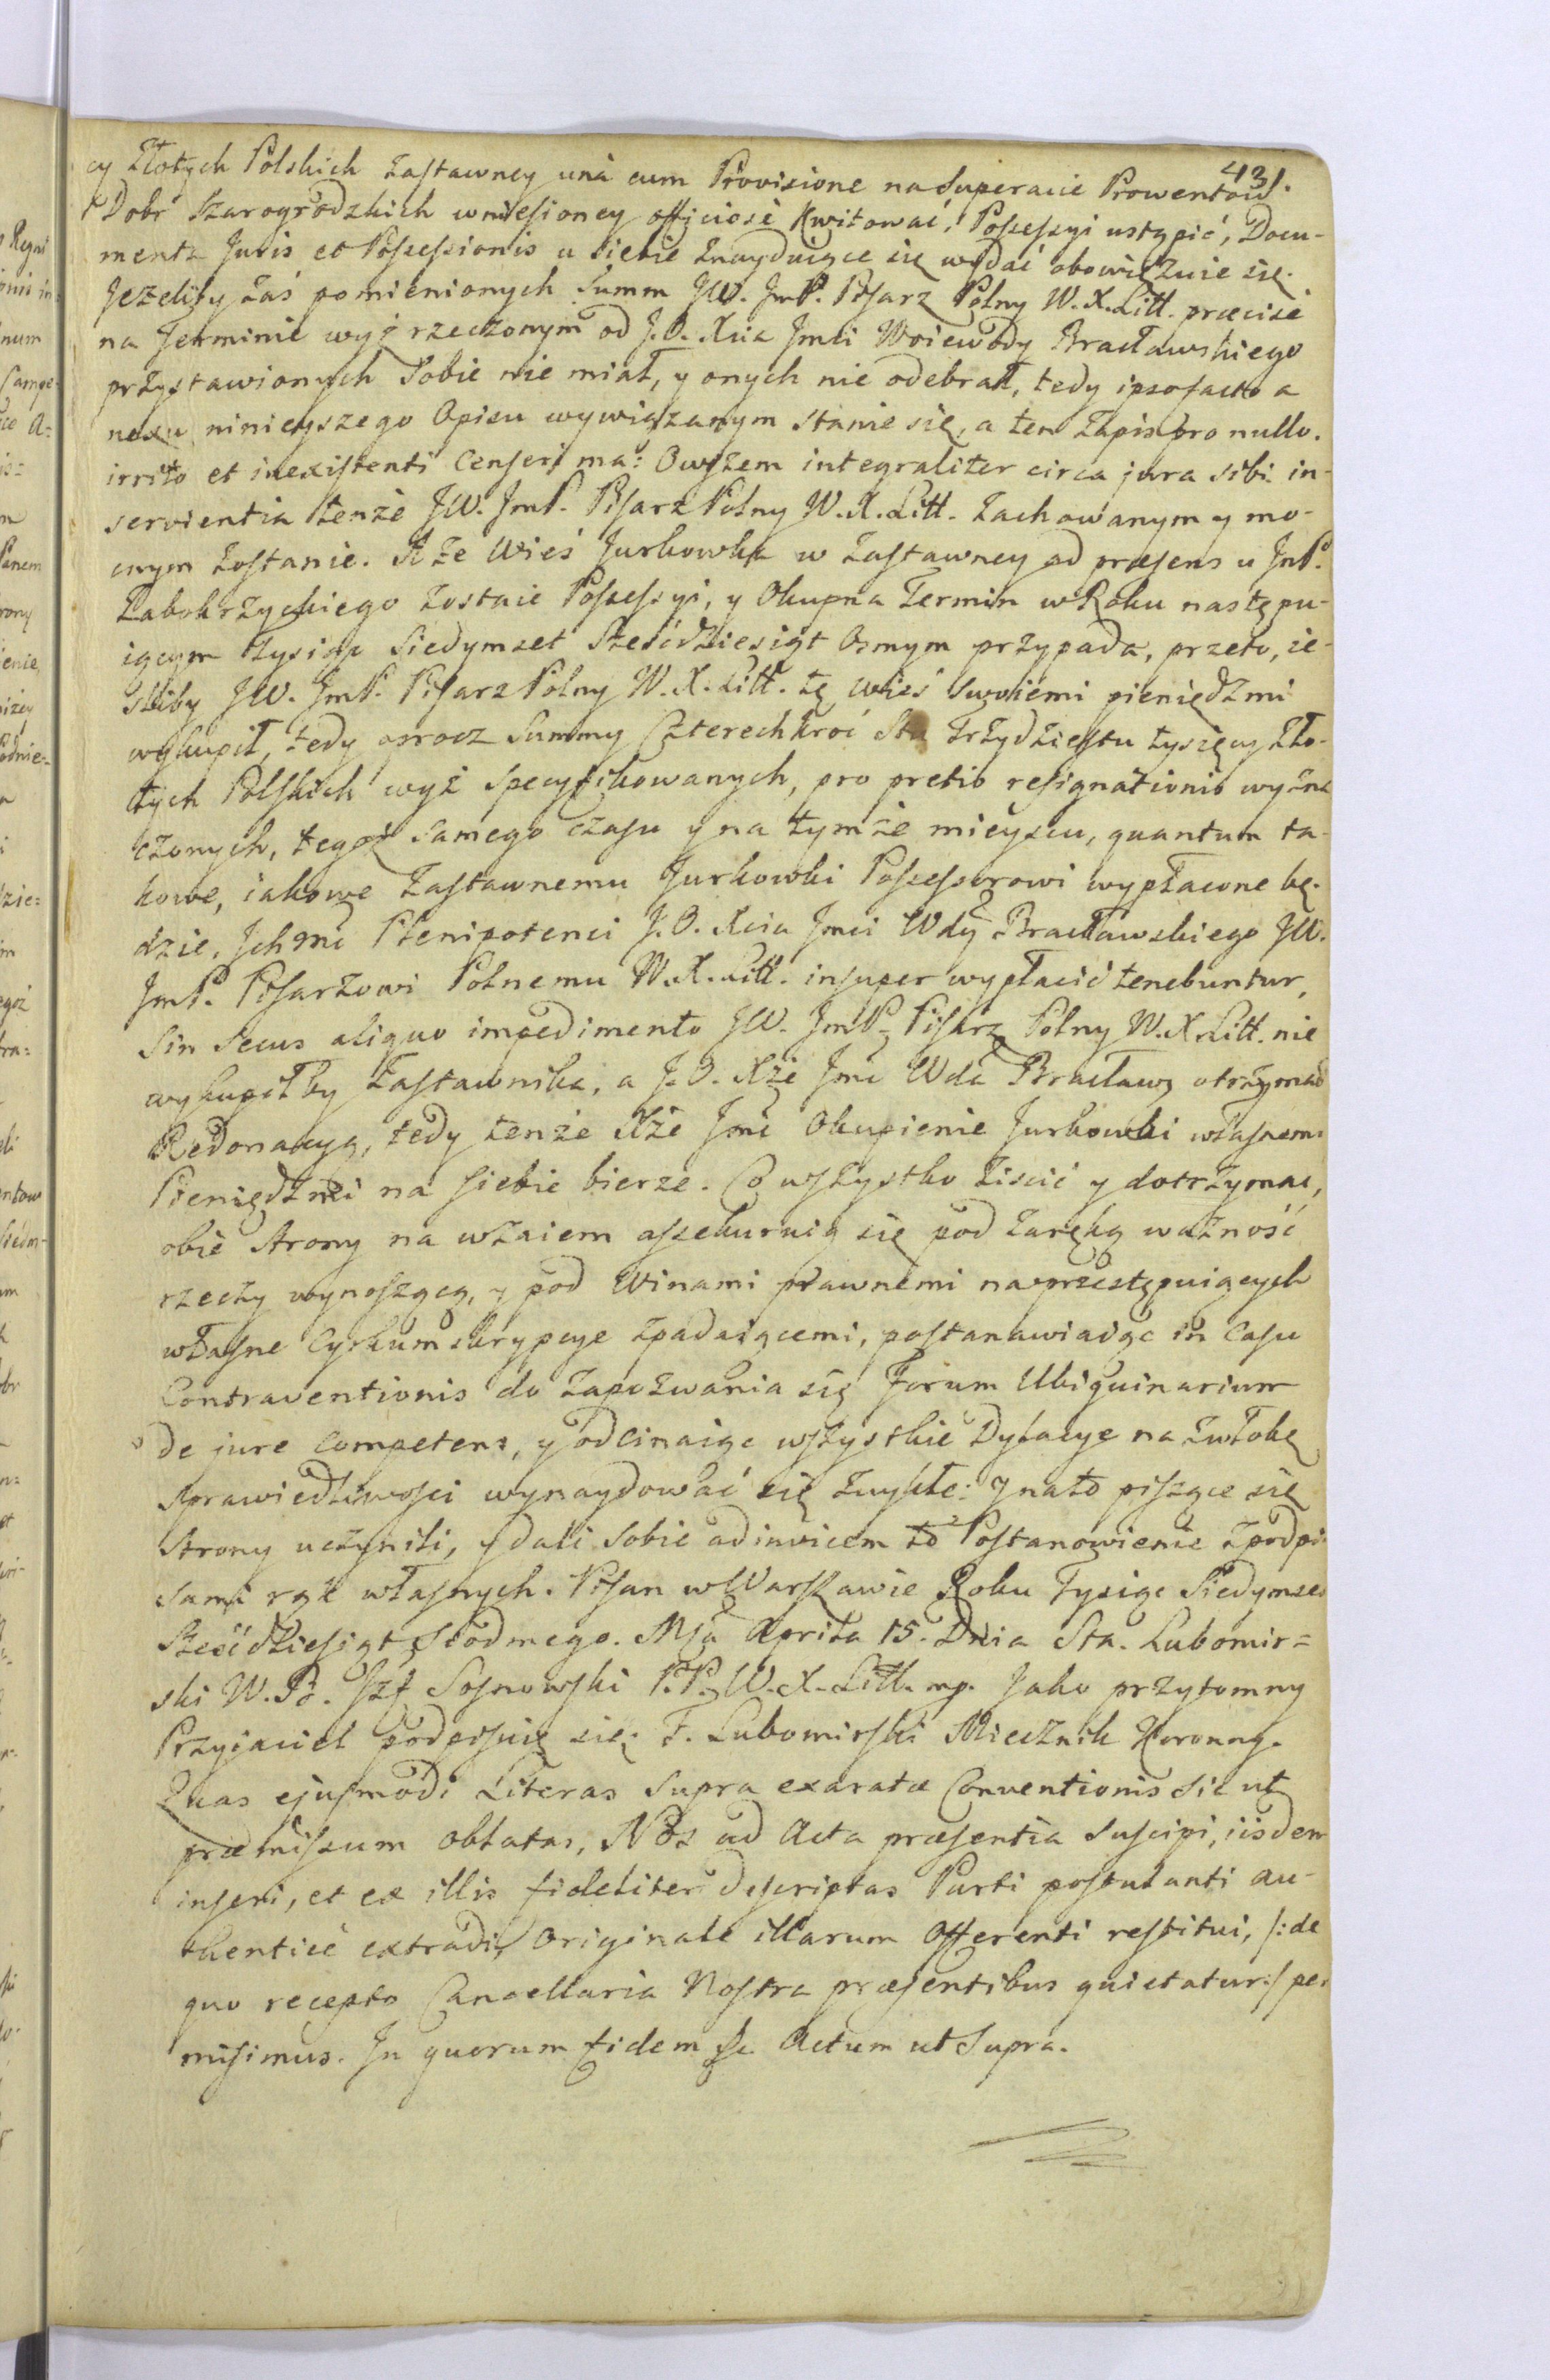 431.
cy Złotych Polskich Zastawney una cum Provisione na Superacie Prowentów
Dobr Szarogrodzkich wniesioney officiose kwitować, Possessyi ustąpić, Docu-
menta Juris et Possessionis u siebie znayduiące się wydać obowiązuie się.
Jeżeliby zaś pomienionych Summ JW. JmP. Pisarz Polny W. X. Litt. præcise
na Terminie wyż rzeczonym od J. O. Xcia Jmci Woiewody Bracławskiego
przystawionych Sobie nie miał, y onych nie odebrał, tedy ipso facto a
nexu ninieyszego Opisu wywiązanym stanie się, a ten Zapis pro nullo.
irrito et inexistenti Censeri ma: Owszem integraliter circa jura sibi in-
servientia tenże JW. JmP. Pisarz Polny W. X. Litt. Zachowanym y mo-
cnym zostanie. A że Wieś Jurkowka w Zastawney ad præsens u JmP.
Zabokrzyckiego zostaie Possessyi, y Okupna Termin w Roku następu-
iącym tysiąc Siedymset Sześćdziesiąt Osmym przypada, przeto, ie-
śliby JW. JmP. Pisarz Polny W. X. Litt. tę wieś Swoiemi pieniędzmi
wykupił, tedy oprocz Summy Czterechkroć Sta Trzydziestu tysięcy Zło-
tych Polskich wyż specyfikowanych, pro pretio resignationis wyzna
czonych, tegoż samego czasu y na tymże mieyscu, quantum ta-
kowe, iakowe Zastawnemu Jurkowki Possessorowi wypłacone bę-
dzie, Ichmć Plenipotenci J. O. Xcia Jmci Wdy Bracławskiego JW.
JmP. Pisarzowi Polnemu W. X. Litt. insuper wypłacić tenebuntur,
Sin Secus aliquo impedimento JW. JmP. Pisarz Polny W. X. Litt. nie
wykupiłby Zastawnika, a J. O. Xże Jmć Wda Bracławs otrzymał
Redonacyą, tedy tenże Xże Jmć Okupienie Jurkowki własnemi
Pieniędzmi na siebie bierze. Co wszystko ziścić y dotrzymać,
obie Strony na wzaiem assekuruią się pod zaręką ważność
rzeczy wynoszącą, y pod Winami prawnemi na przestępuiących
własne Cyrkumskrypcye spadaiącemi, postanawiaiąc in Casu
Contraventionis do Zapozwania się Forum Ubiquinarium
de jure competens, y odcinaiąc wszystkie Dylacye na zwłokę
sprawiedliwości wynaydować się zwykłe: Y na to piszące się
Strony uczynili, y dali Sobie adinvicem to Postanowienie z podpi-
sami rąk własnych. Pisan w Warszawie Roku Tysiąc Siedymset
Sześćdziesiąt Siodmego. Msca Aprila 15. Dnia Sta. Lubomir=
ski W. B. Jzf Sosnowski P. P. W. X. Litt. mp. Jako przytomny
Przyiaciel podpisuię się. F. Lubomirski Miecznik Koronny.
Quas ejusmodi Literas Supra exaratæ Conventionis Sic ut
præmissum oblatas, Nos ad Acta præsentia suscipi, iisdem
inseri, et ex illis fideliter descriptas Parti postulanti au-
thentice extradi, Originale illarum Offerenti restitui, /:de
quo recepto Cancellaria Nostra præsentibus quietatur:/ per
misimus. In quorum fidem &c Actum ut Supra.